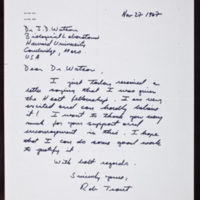 Nov 27 1967
Dr J.D. Watson
Biological Laboratories
Harvard University
Cambridge, Mass
USA
Dear Dr Watson,
I just today received a
letter saying that I was given
the fellowship. I am very
excited and can hardly believe
it! I want to thank you very
much for your support and
encouragement in this. I hope
that I can do some good work
to justify it.
With best regards.
Sincerely yours,
Rob